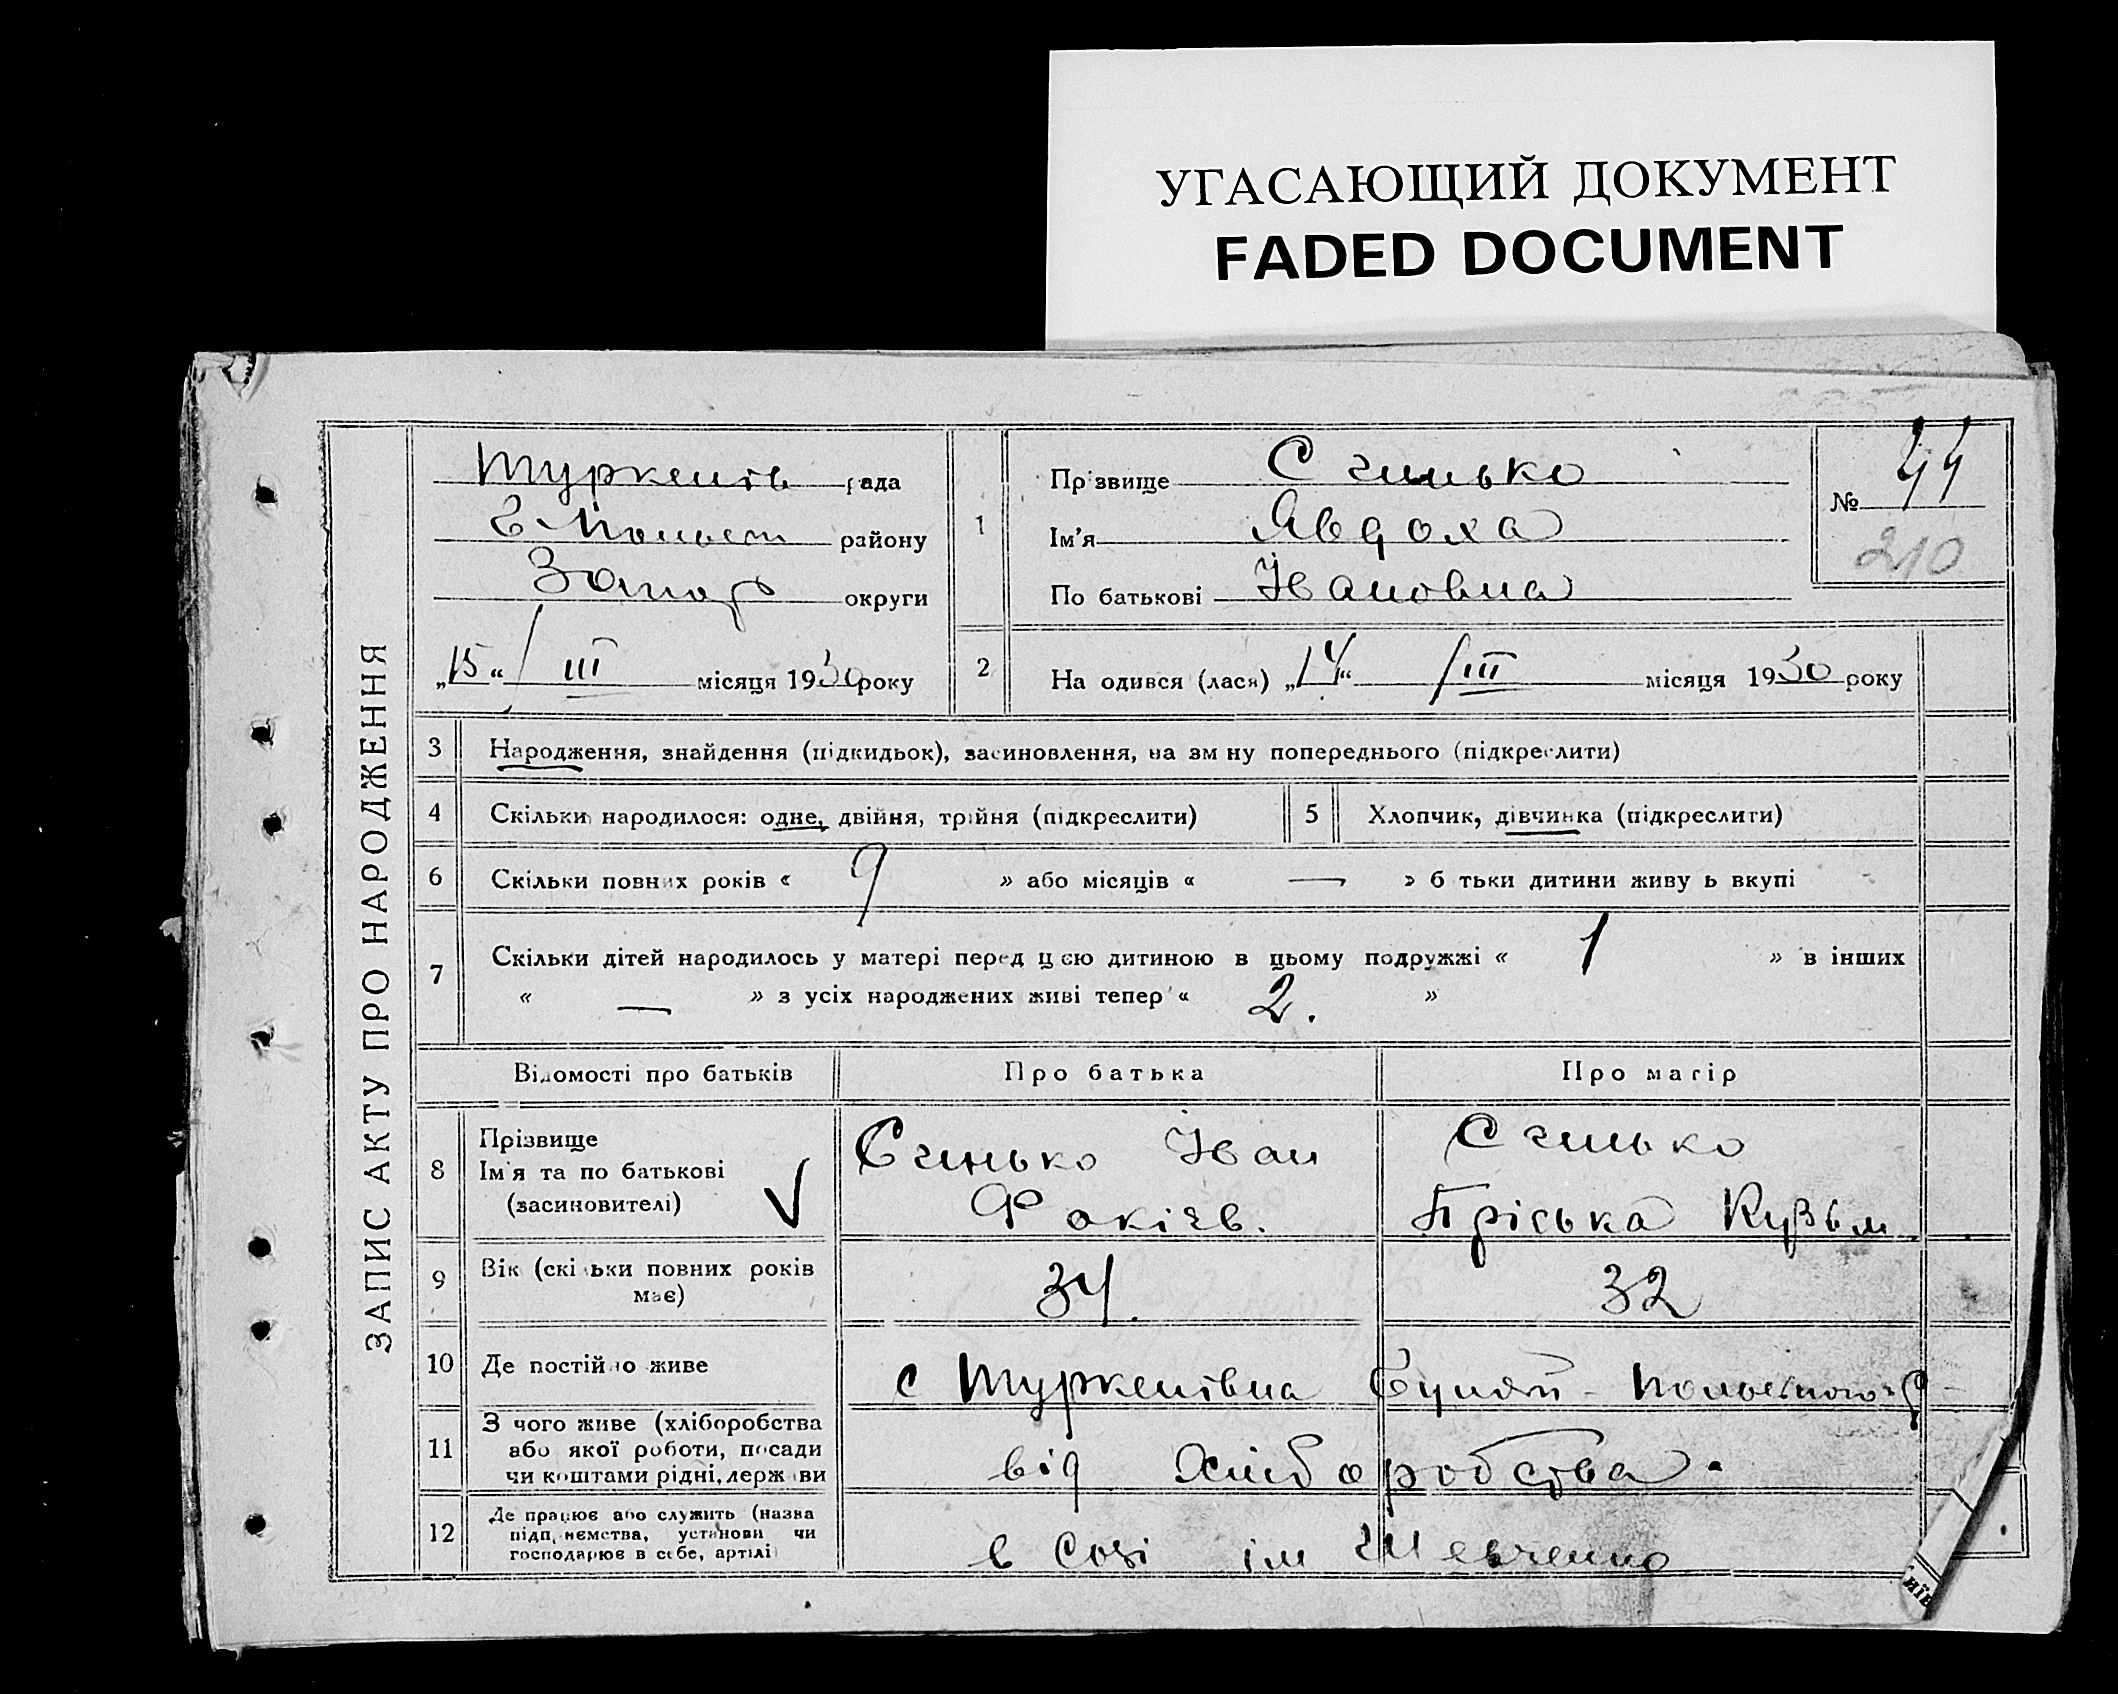 УГАСАЮЩИЙ ДОКУМЕНТ
FADED DOCUMENT
ЗАПИС АКТУ ПРО НАРОДЖЕННЯ
Туркенів рада
району
Запор округи
„15“ / III місяця 1930 року
1
Прізвище Єчинько
Ім'я Явдоха
По батькові Івановна
№ 44
210
2 На одився (лася) „14“ / III місяця 1930 року
3 Народження, знайдення (підкидьок), засиновлення, на зм ну попереднього (підкреслити)
4 Скільки народилося: одне, двійня, трійня (підкреслити)
5 Хлопчик, дівчинка (підкреслити)
6 Скільки повних років « 9 » або місяців « — » б тьки дитини живу ь вкупі
7 Скільки дітей народилось у матері перед цією дитиною в цьому подружжі « 1 » в інших
« — » з усіх народжених живі тепер « 2. »
Відомості про батьків
Про батька
Про матір
8 Прізвище
Ім'я та по батькові
(засиновителі)
Іван
Фокієв.
Пріська Кузьм
9 Вік (скільки повних років
має)
34.
32
10 Де постійно живе
с Туркенівка
11 З чого живе (хліборобства
або якої роботи, посади
чи коштами рідні, держ ви
від Хліборобства.
12 Де працює або служить (назва
підп, иємства, установи чи
господарює в себе, артілі
в Созі ім Шевченко
иїв